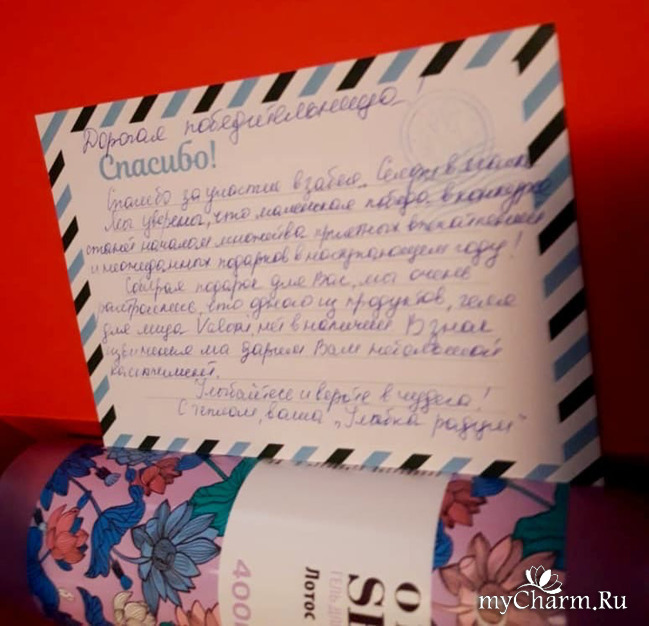 Дорогая победительница!
Спасибо!
Спасибо за участие в забеге
Мы уверены, что маленькая победа в конкурсе
станет началом множества приятных впечатлений
и неожиданных подарков в наступающем году!
Собирая подарок для Вас, мы очень
расстроились, что одного из продуктов, геля
для лица нет в наличии. В знак
извинения мы дарим Вам небольшой
комплимент.
Улыбайтесь и верьте в чудеса!
С теплом, ваша „Улыбка радуги“
400
Лотос
ГЕЛЬ ДЛ
myCharm.Ru